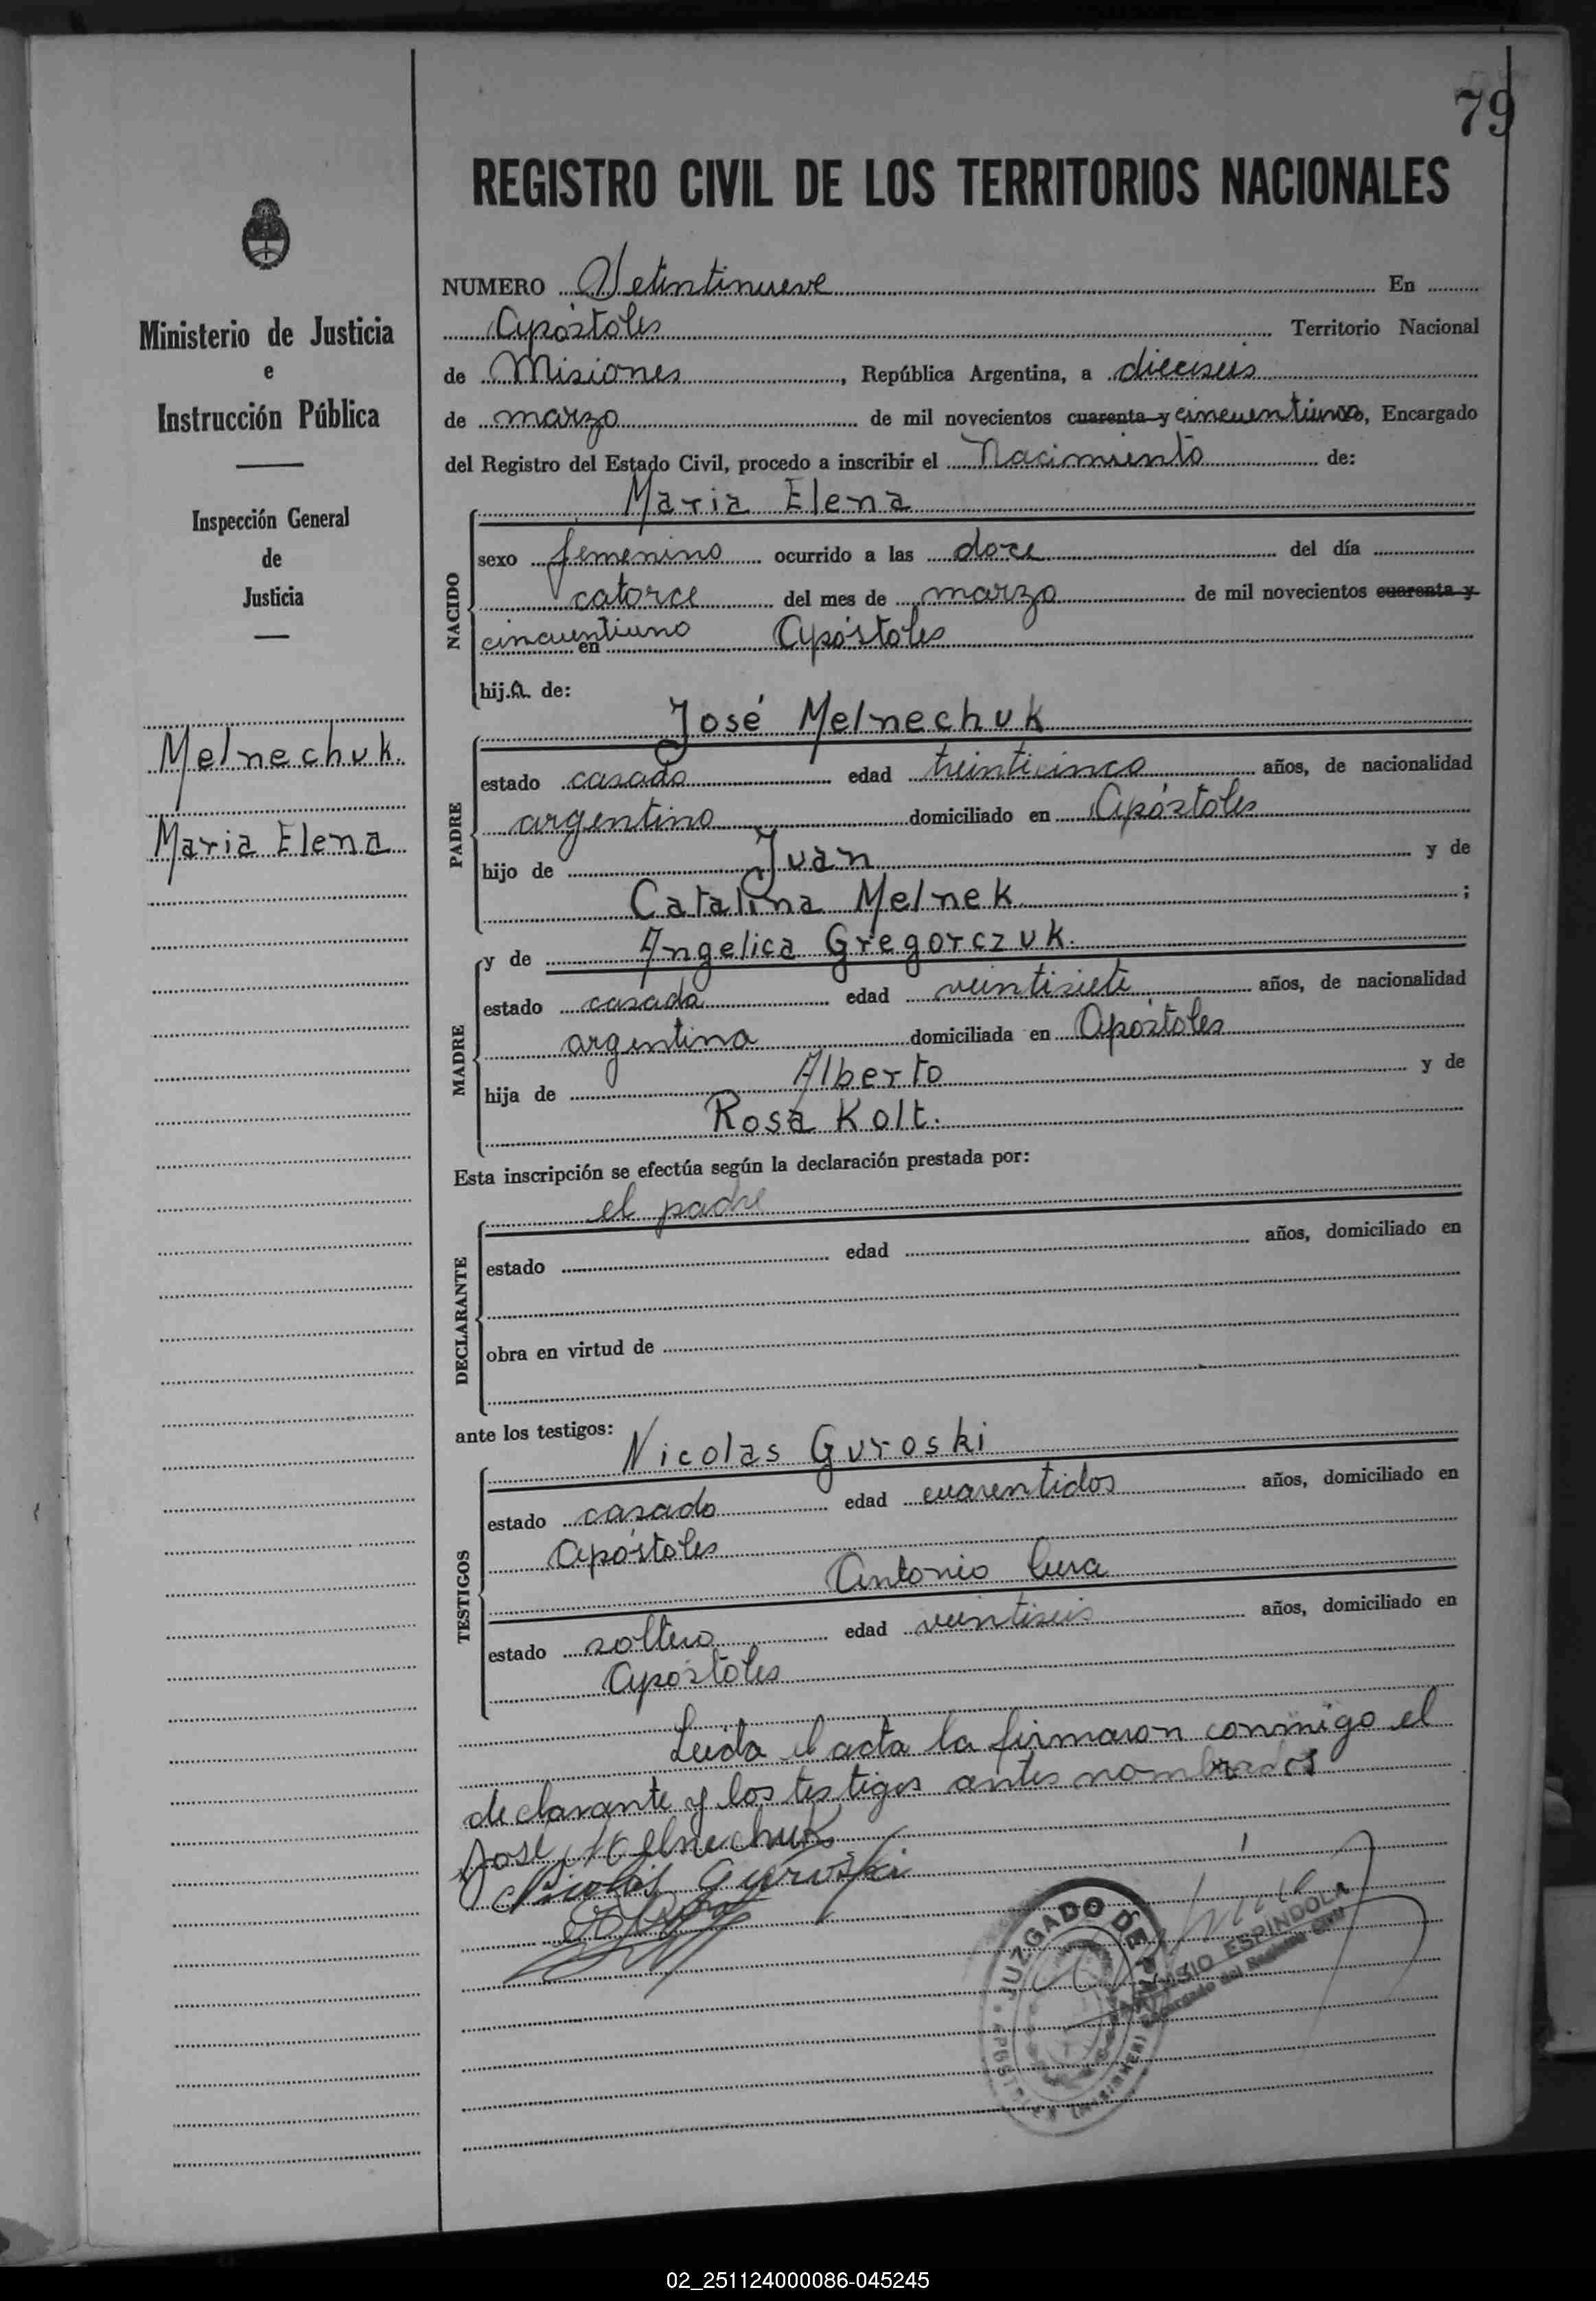 79
REGISTRO CIVIL DE LOS TERRITORIOS NACIONALES
Ministerio de Justicia
e
Instrucción Pública
Inspección General
de
Justicia
Melnechuk.
Maria Elena
NUMERO Setentinueve En
Apóstoles Territorio Nacional
de Misiones, República Argentina, a dieciseis
de marzo de mil novecientos cuarenta y cincuentiuno, Encargado
del Registro del Estado Civil, procedo a inscribir el Nacimiento de:
Maria Elena
NACIDO
sexo femenino ocurrido a las doce del día
catorce del mes de marzo de mil novecientos cuarenta y
cincuentiuno en Apóstoles
hija de:
José Melnechuk
PADRE
estado casado edad treinticinco años, de nacionalidad
argentino domiciliado en Apóstoles
hijo de Juan y de
Catalina Melnek ;
y de Angelica Gregorczuk.
MADRE
estado casada edad veintisiete años, de nacionalidad
argentina domiciliada en Apóstoles
hija de Alberto y de
Rosa Kolt.
Esta inscripción se efectúa según la declaración prestada por:
el padre
DECLARANTE
estado edad años, domiciliado en
obra en virtud de
ante los testigos:
Nicolas Guroski
TESTIGOS
estado casado edad cuarentidos años, domiciliado en
Apóstoles
Antonio
estado soltero edad veintiseis años, domiciliado en
Apóstoles
Leida el acta la firmaron conmigo el
declarante y los testigos antes nombrados
José Melnechuk
Nicolás Guroski
JUZGADO DE
ESPINDOLA
Encargado del Registro Civil
02_251124000086-045245